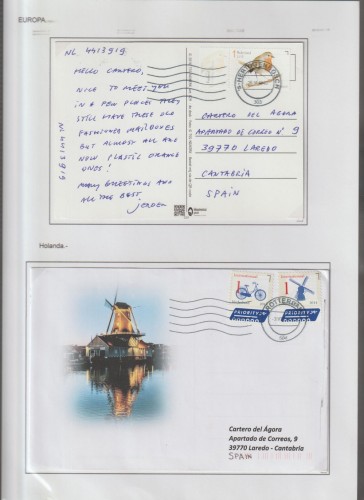 EUROPA.-
NL 4413919.
HELLO CARTERO,
NICE TO MEET YOU
IN A FEW PLACES THEY
STILL HAVE THESE OLD
FASHIONED MAILBOXES
BUT ALMOST ALL ARE
NOW PLASTIC ORANGE
ONES!
MANY GREETINGS AND
ALL THE BEST,
JEROEN
NL 4413919
'S-HERTOGENBOSCH
CARTERO DEL ÁGORA
APARTADO DE CORREO Nº 9
39770 LAREDO
CANTABRIA
SPAIN
Holanda.-
ROTTERDAM
1
1
PRIORITY
PRIORITY
Cartero del Ágora
Apartado de Correos, 9
39770 Laredo - Cantabria
SPAIN